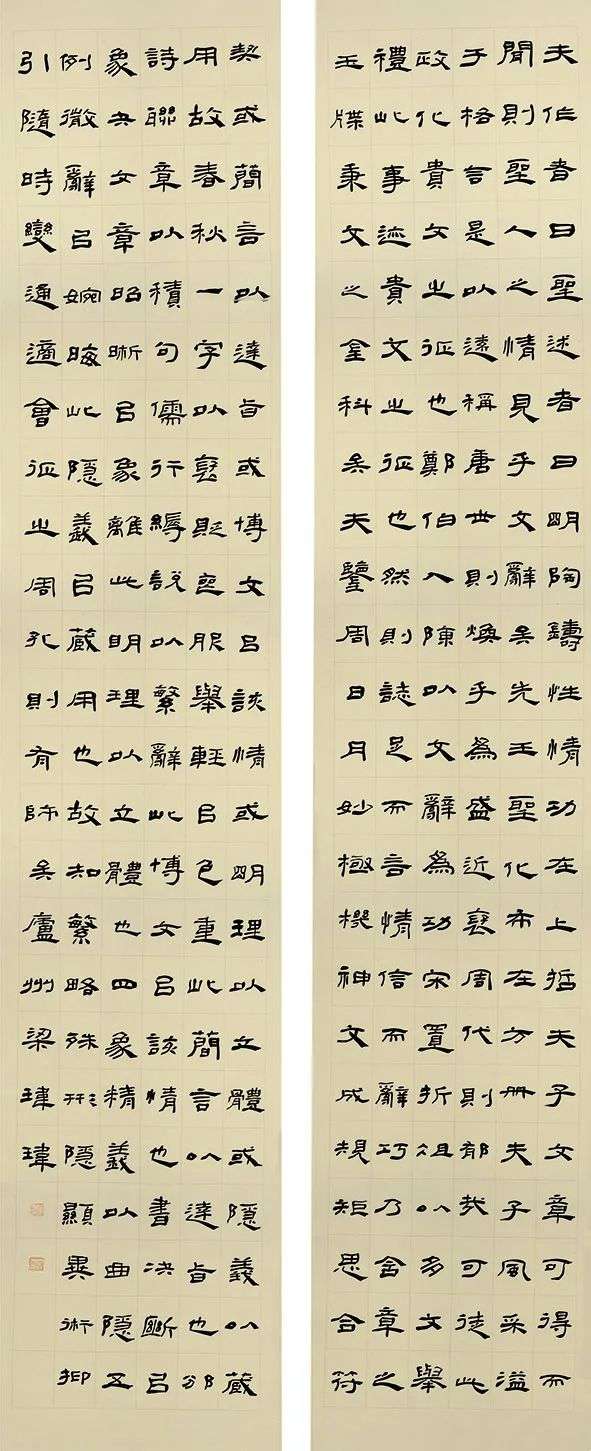 夫作者曰聖述者曰明陶鑄性情功在上哲夫子文章可得而
聞則聖人之情見乎文辭矣先王聖化布在方冊夫子風采溢
于格言是以遠稱唐世則煥乎為盛近褒周代則郁哉可徒此
政化貴文之征也鄭伯入陳以文辭為功宋置折俎以多文舉
禮此事迹貴文之征也然則誌足而言情信而辭巧乃舍章之
玉牒秉文之金科矣夫鑒周日月妙極機神文成規矩思合符
契或簡言以達旨或博文以該情或明理以立體或隱義以藏
用故春秋一字以褒貶喪服舉輕以包重此簡言以達旨也邠
詩聯章以積句儒行縟說以繁辭此博文以該情也書決斷以
象夬文章昭晰以象離此明理以立體也四象精義以曲隱五
例微辭以婉晦此隱義以藏用也故知繁略殊形隱顯異術抑
引隨時變通適會征之周孔則有師矣廬州梁瑋瑋